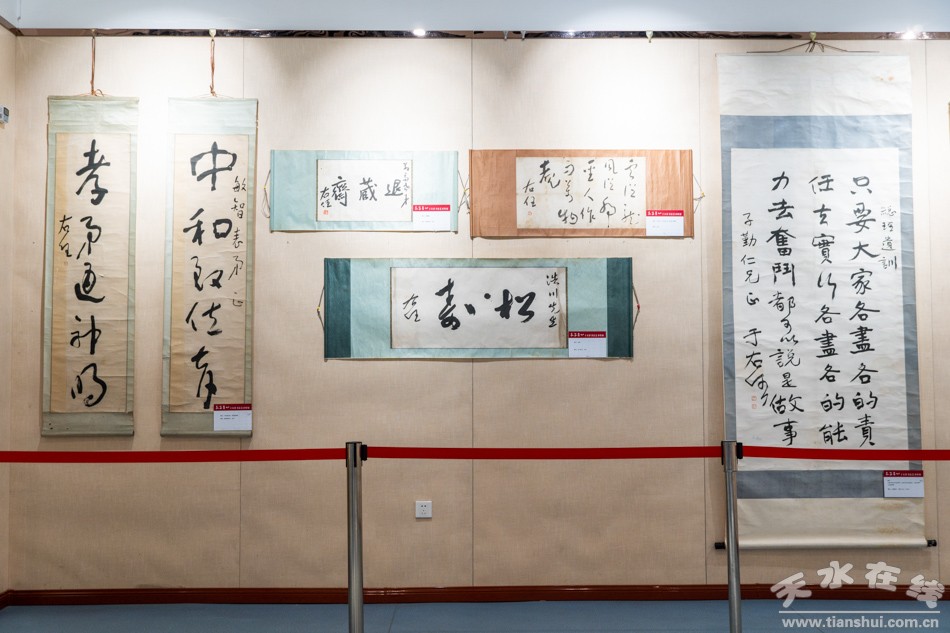 中和致位育
敏智表弟正
孝弟通神明
右任
退藏齋
右任
雲從龍
風從虎
聖人作
而萬物
覩
右任
松壽
右任
總理遺訓
只要大家各盡各的責
任去實行各盡各的能
力去奮鬥都可以說是做事
子勤仁兄正
于右任
天水在线
www.tianshui.com.cn